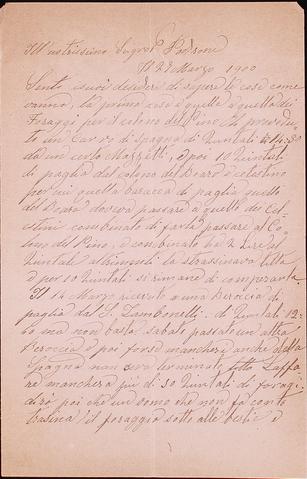 Ill'ustrissimo Sugnor Padrone
li 21 Marzo 1900
Sento suoi desidere di sapere le cose come
vanno, la prima cosa è quella a quella dei
Foraggi per il colono del Pino ho proveduto
un Carro di Spagna di Quintali 14:80
da un certo Mazzetti, e poi 10 Quintali
di paglia dal cologno del Board Celestino
per cui quella baracca di paglia quello
del Board doveva passare a quello dei Celestini
combinato di farla passare al Colono
del Pino, e combinato ha 2 Lire al
Quintale altrimenti la strassinava tutta
e poi 10 Quintali si rimane di comperarla
Il 14 Marzo ricevuto a una Beroccia di
paglia dal S. Zambonelli di Quintali 12-
60 ma non basta sabato passato un altra
Beroccia e poi forse mancherà anche della
Spagna non sarà terminato tutto l'affare
mancherà più di 30 Quintali di foraggi
dirò poi che un uomo che non fa conti
Casina il foraggio sotto alle bestie e